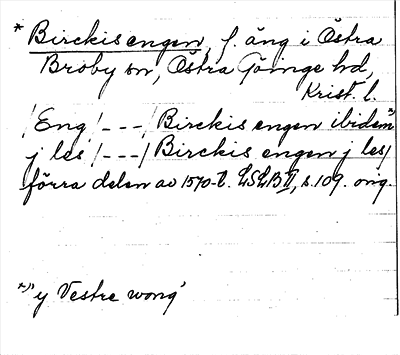 * Birckis engen, f. äng i Östra
Broby sn, Östra Göinge hd,
Krist. l.
/Eng/ - - -/ Birckis engen ibidem *)
j les /- - -/ Birckis engen j les/
förra delen av 1570-t. LSLB II, s. 109. orig.
*) 'y Vestre wong'